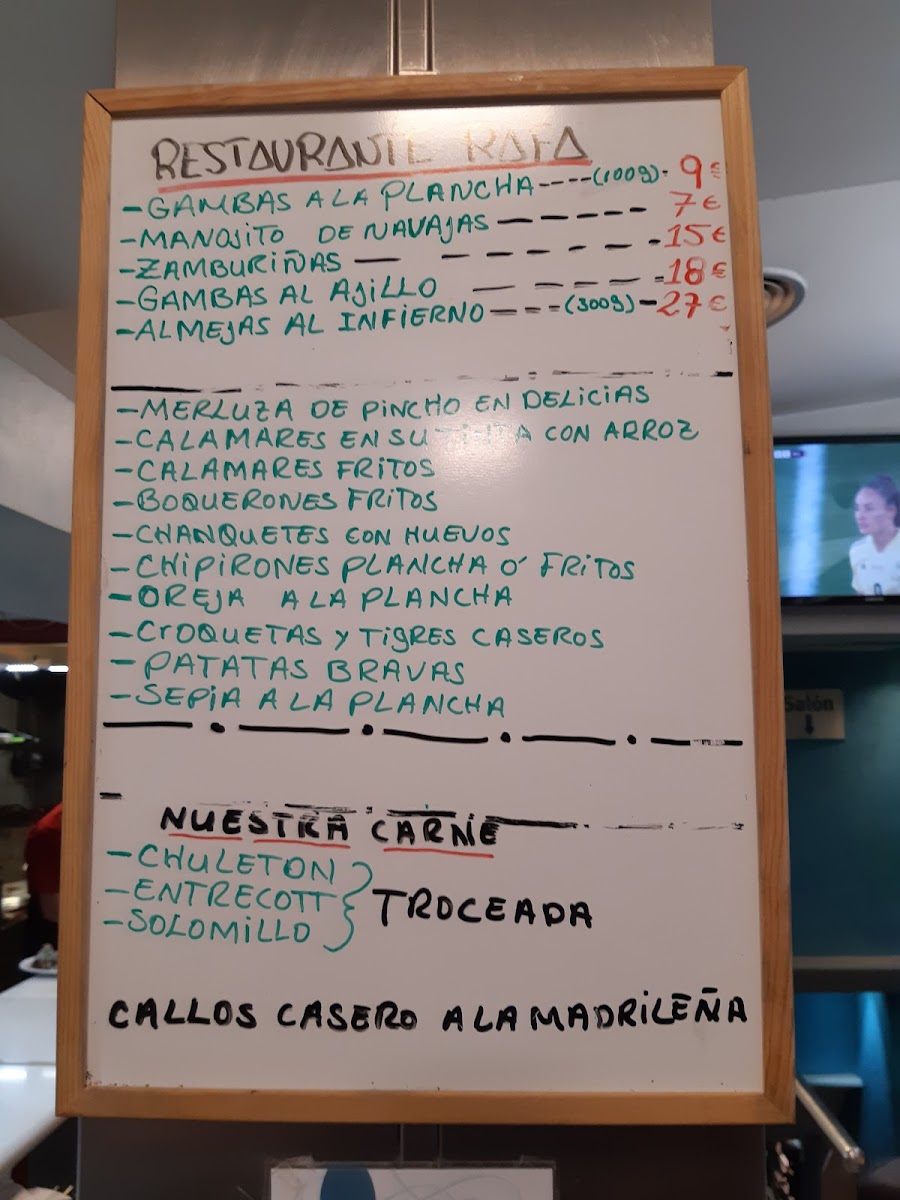 RESTAURANTE RAFA
-GAMBAS A LA PLANCHA----(100g)- 9€
-MANOJITO DE NAVAJAS ----- 7€
-ZAMBURIÑAS -- ------ -15€
-GAMBAS AL AJILLO -----18€
-ALMEJAS AL INFIERNO----(300g)-27€
-MERLUZA DE PINCHO EN DELICIAS
-CALAMARES EN SU TINTA CON ARROZ
-CALAMARES FRITOS
-BOQUERONES FRITOS
-CHANQUETES CON HUEVOS
-CHIPIRONES PLANCHA Ó FRITOS
-OREJA A LA PLANCHA
-CROQUETAS Y TIGRES CASEROS
-PATATAS BRAVAS
-SEPIA A LA PLANCHA
NUESTRA CARNE
-CHULETON
-ENTRECOTT
-SOLOMILLO
TROCEADA
CALLOS CASERO A LA MADRILEÑA
Salón